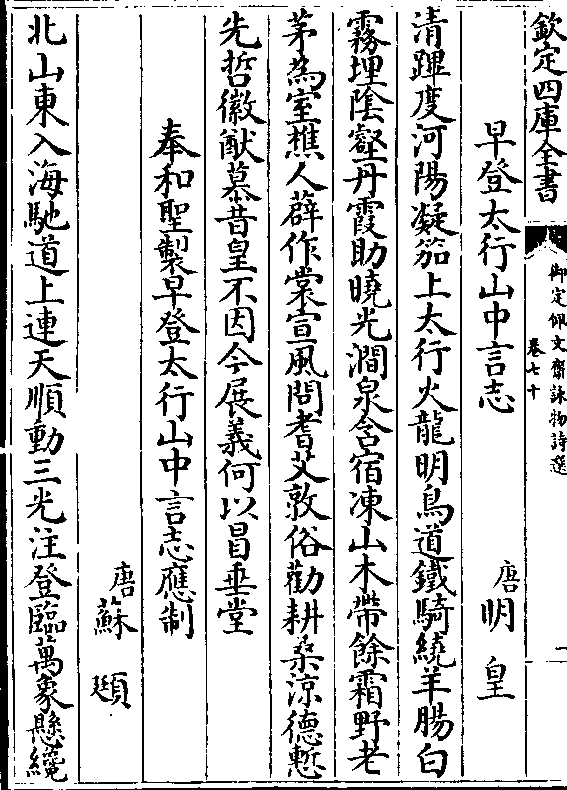 欽定四庫全書
御定佩文齋詠物詩選
卷七十
一
早登太行山中言志
唐明皇
清蹕度河陽凝笳上太行火龍明鳥道鐵騎繞羊腸白
霧埋陰壑丹霞助曉光澗泉含宿凍山木帶餘霜野老
茅為室樵人薜作裳宣風問耆艾敦俗勸耕桑涼德慙
先哲徽猷慕昔皇不因今展義何以冒垂堂
奉和聖製早登太行山中言志應制
唐蘇頲
北山東入海馳道上連天順動三光注登臨萬象懸纔